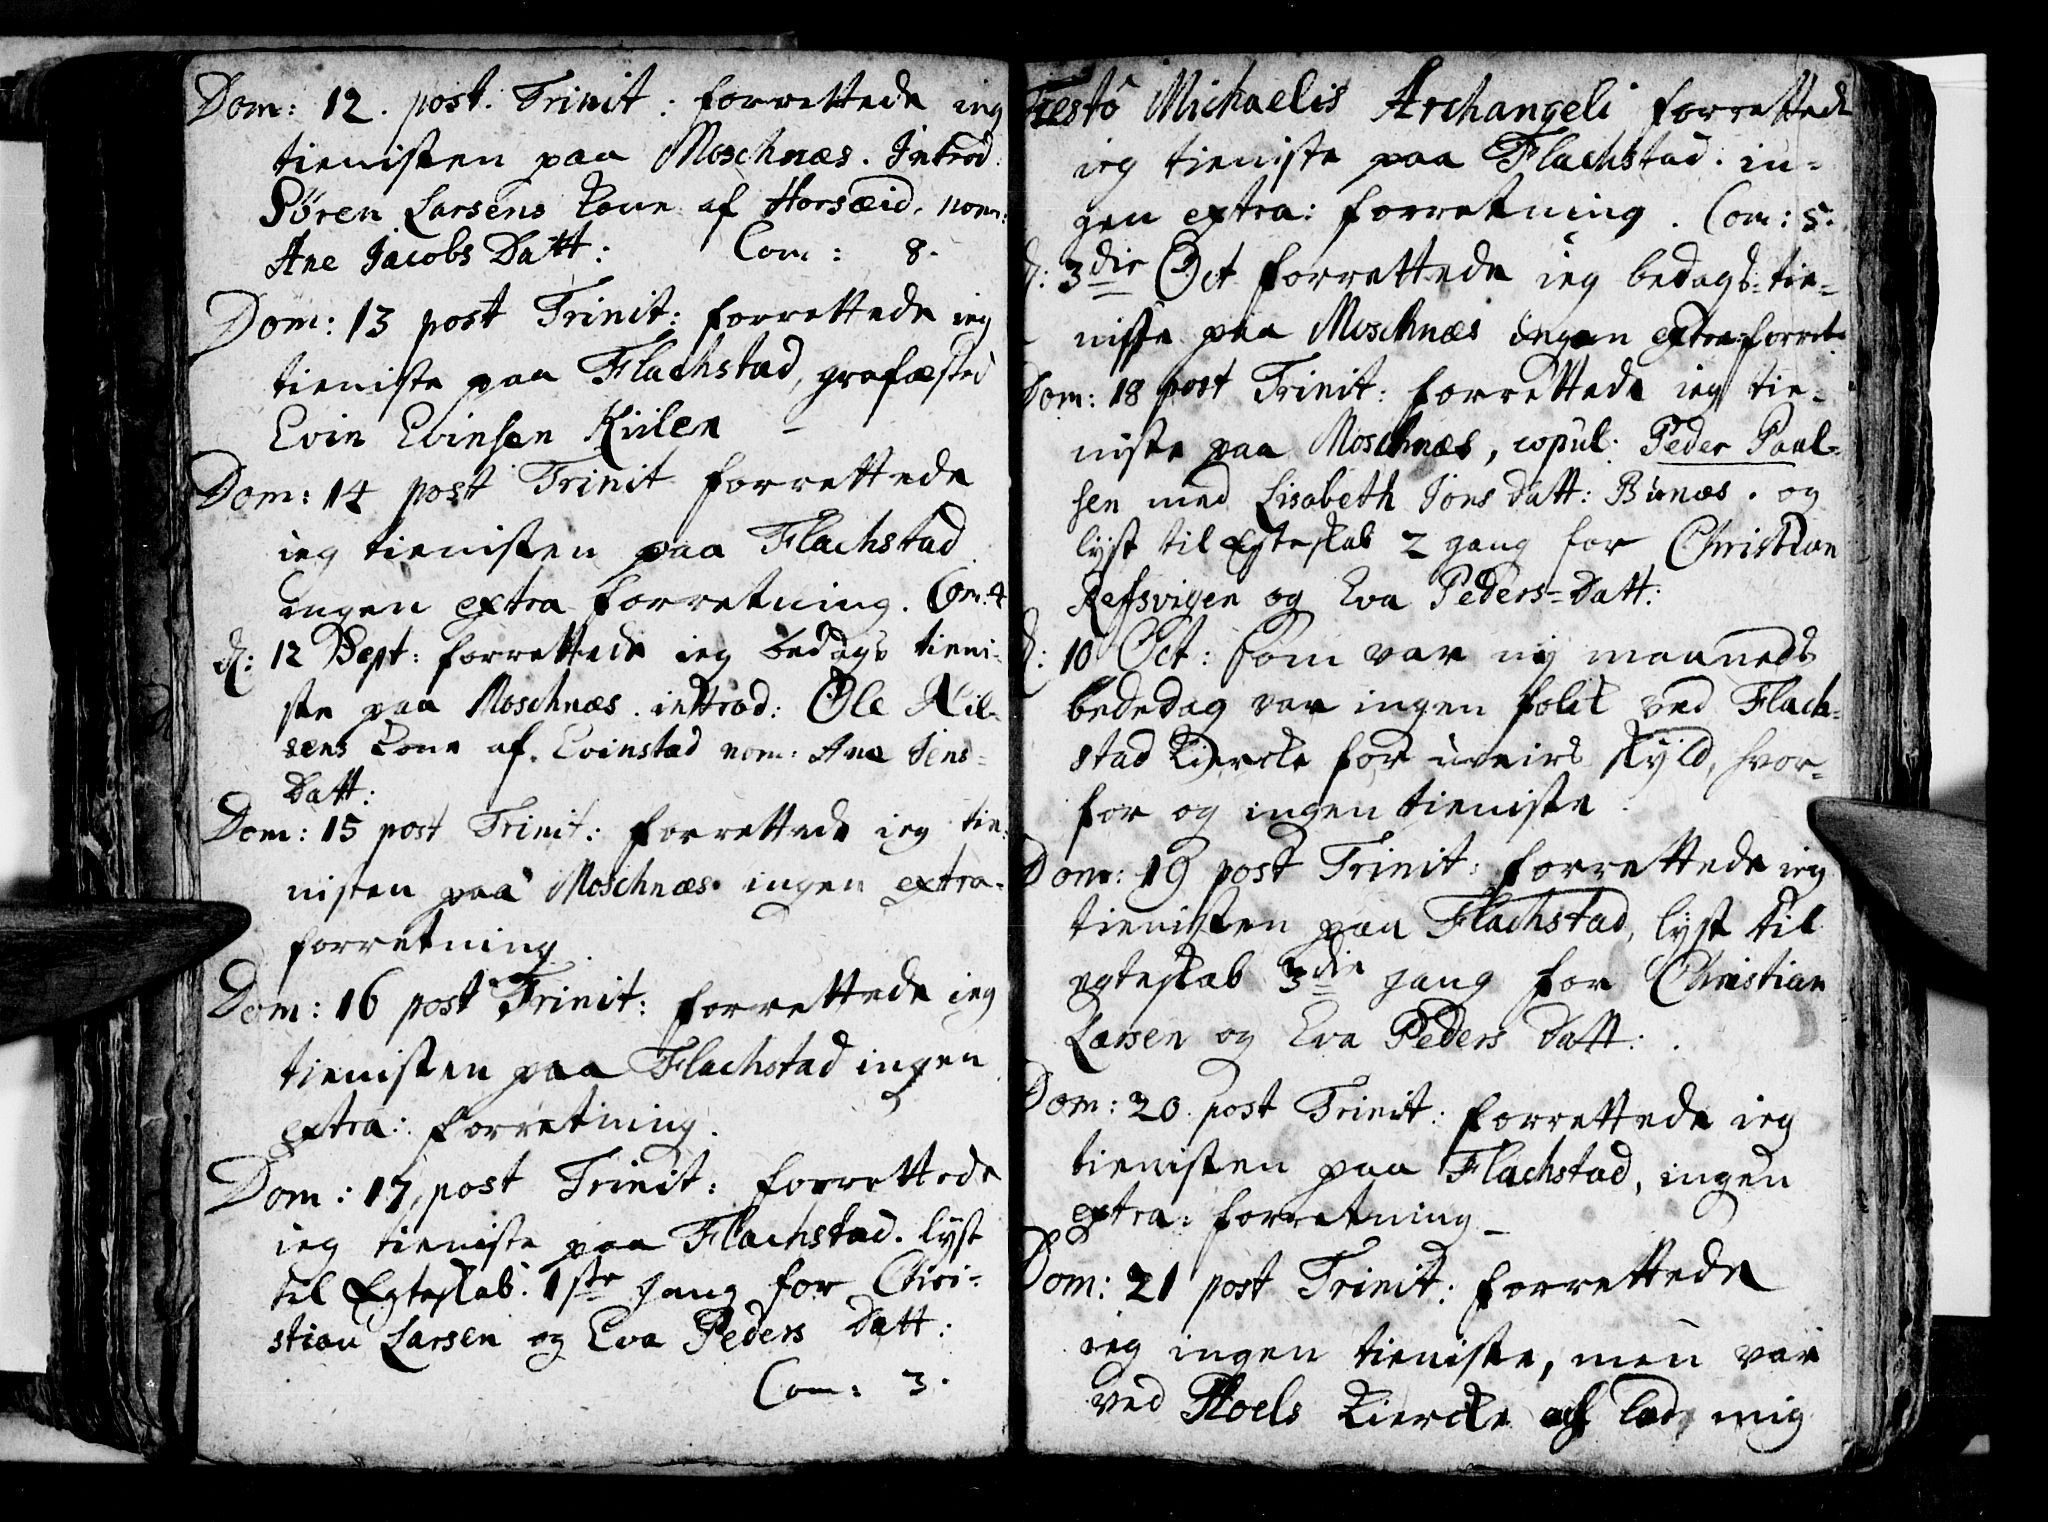 Dom: 12. post. Trinit: forrettede ieg
tienisten paa Moschnæs. Introd:
Søren Larsens Kone af Horsæid. nom:
Ane Jacobs Datt: Com: 8.
Dom: 13 post Trinit: forrettede ieg
tieniste paa Flachstad, grafæsted
Evin Evinsen Kiilen –
Dom: 14 post Trinit forrettede
ieg tienisten paa Flachstad
ingen extra forretning. Com: 4
d: 12 Sept: forrettede ieg bedags tieni-
ste paa Moschnæs. inttrod: Ole Nil-
sens Kone af. Evinstad nom: Ane Jens-
Datt:
Dom: 15 post Trinit: forrettede ieg tie-
nisten paa Moschnæs. ingen extra-
forretning.
Dom: 16 post Trinit: forrettede ieg
tienisten paa Flachstad ingen
extra: forretning.
Dom: 17, post Trinit: forrettede
ieg tieniste paa Flachstad. lyst
til Egteskab. 1ste gang for Chri-
stian Larsen og Eva Peders Datt:
Com: 3.
Festo Michaelis Archangeli forrettede
ieg tieniste paa Flachstad. in-
gen extra: forretning. Com: 5.
d: 3die Oct forrettede ieg bedags-tie-
niste paa Moschnæs ingen extra forret:
Dom: 18 post Trinit: forrettede ieg tie-
niste paa Moschnæs, copul: Peder Paal-
sen med Lisabeth Jons Datt: Bunæs. og
lyst til Egteskab 2 gang for Christian
Reffsvigen og Eva Peders-Datt:
d: 10 Oct: som var ny maaneds
bededag var ingen folck ved Flach-
stad Kiercke for uveirs skyld, hvor-
for og ingen tieniste.
Dom: 19 post Trinit: forrettede ieg
tienisten paa Flachstad, lyst til
egteskab 3die gang for Christian
Larsen og Eva Peders Datt:.
Dom: 20 post Trinit: forrettede ieg
tienisten paa Flachstad, ingen
extra: forretning –
Dom: 21 post Trinit: forrettede
ieg ingen tieniste, men var
ved Kiercke mig